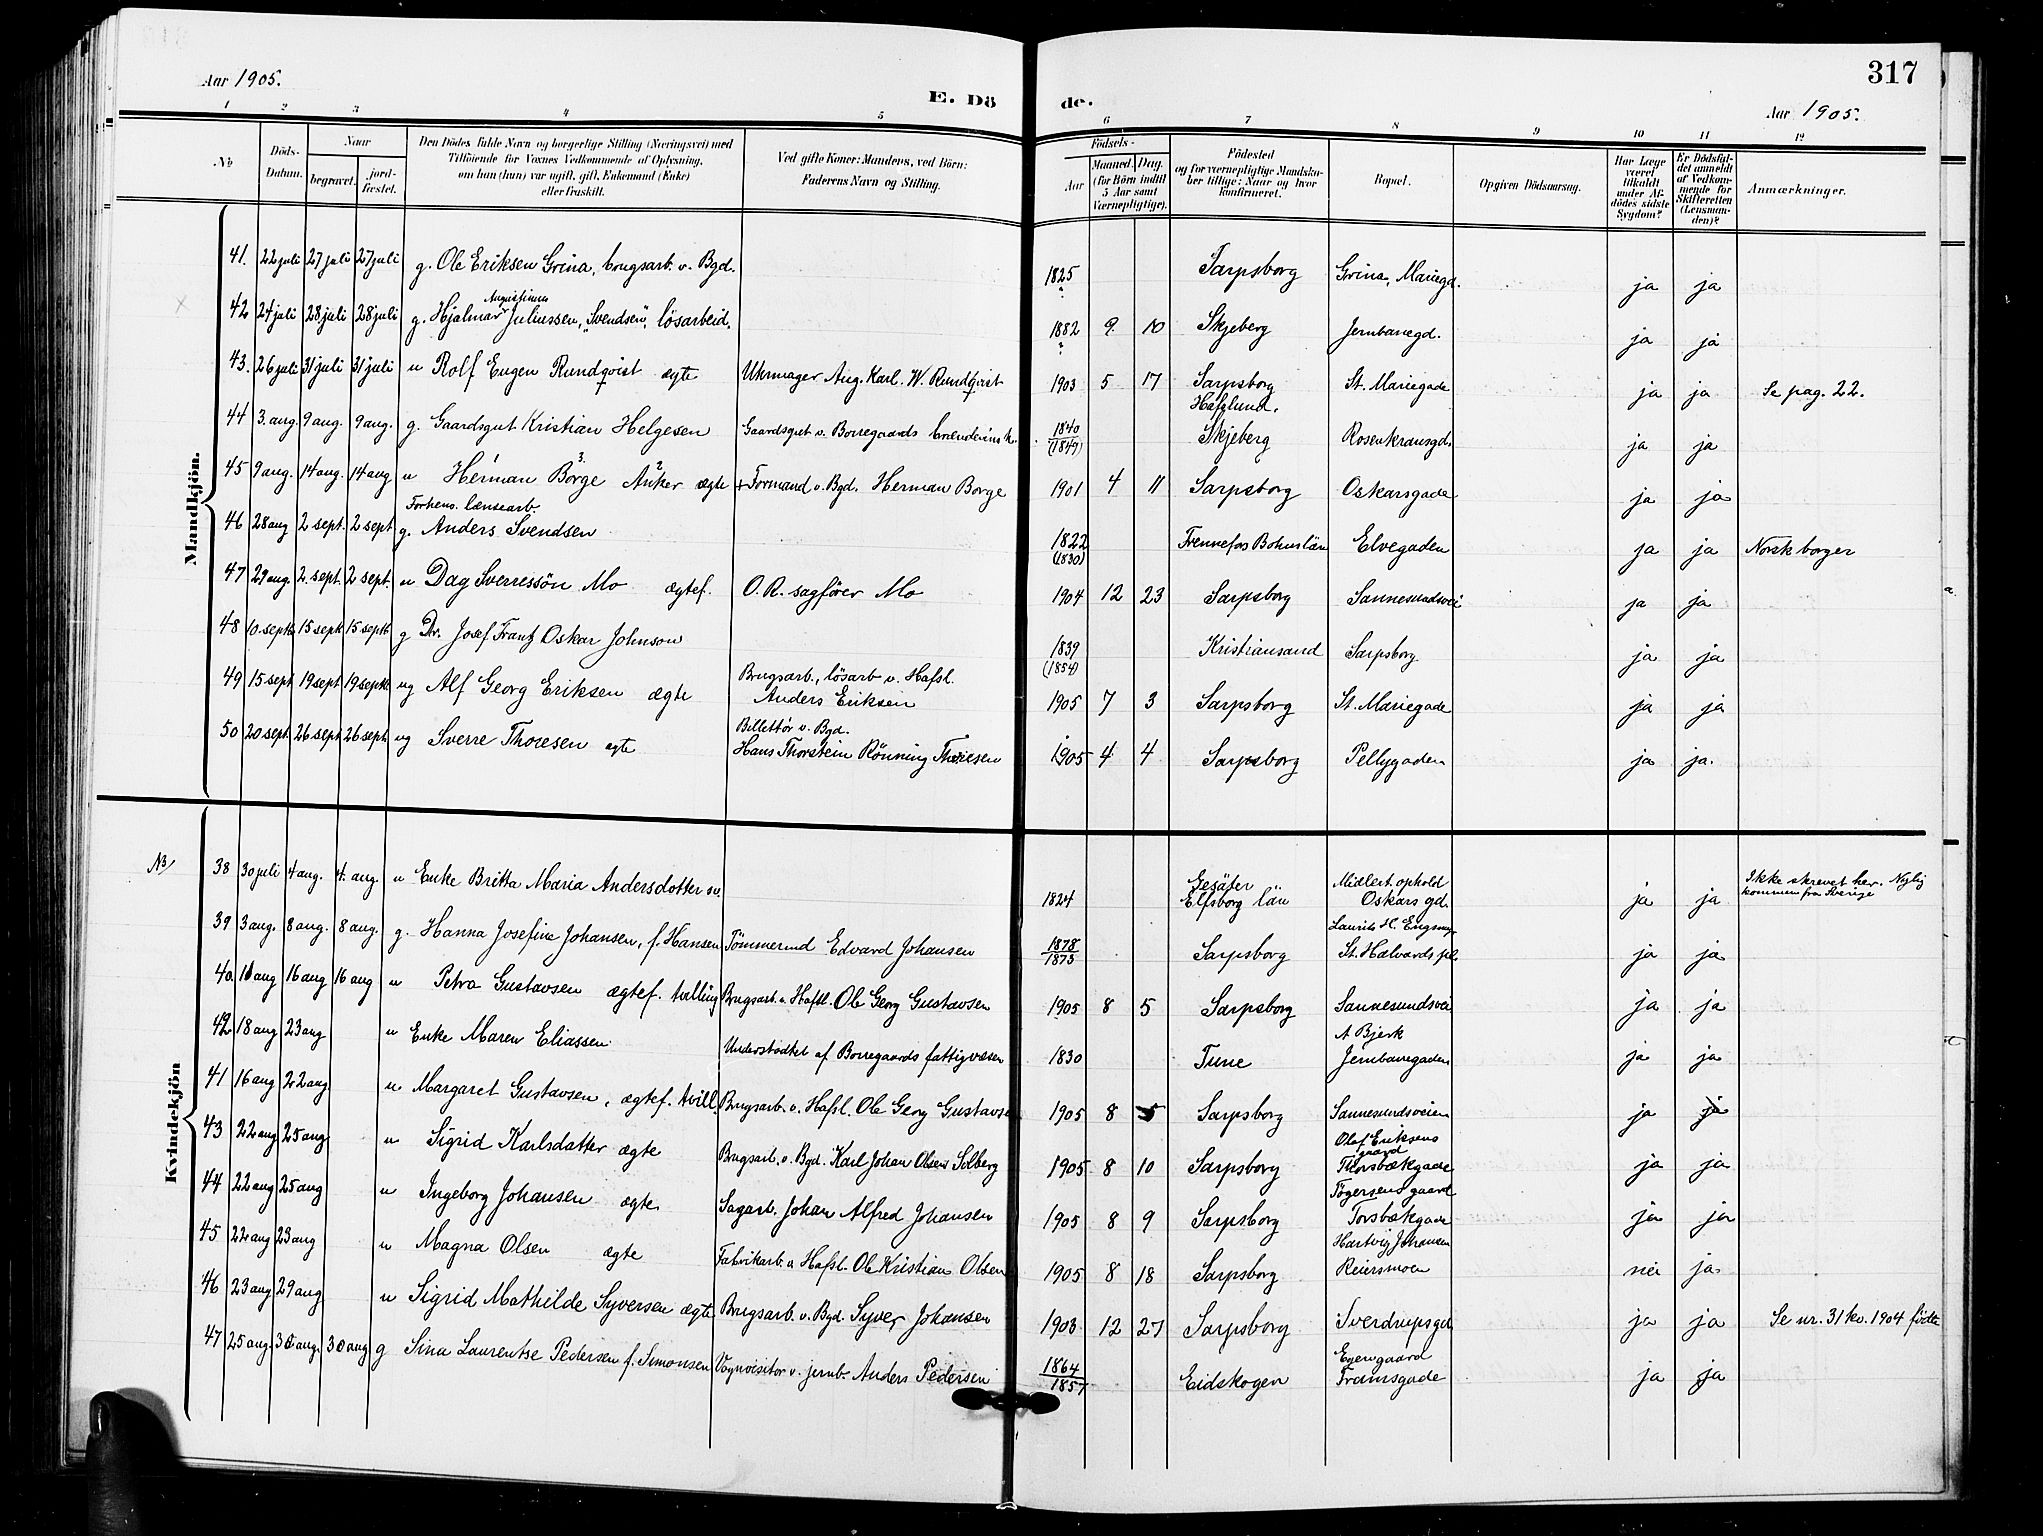 317
Aar 1905.
E. Dö
de.
Aar 1905.
1 2 3 4 5 6 7 8 9 10 11 12
No
Döds-Datum.
Naar
begravet.
jordfæstet.
Den Dödes fulde Navn og borgerlige Stilling (Næringsvei) med
Tilföiende for Voxnes Vedkommende af Oplysning,
om han (hun) var ugift, gift, Enkemand (Enke)
eller fraskilt.
Ved gifte Koner: Mandens, ved Börn:
Faderens Navn og Stilling.
Födsels-
Aar
Maaned. Dag.
(for Börn indtil
5 Aar samt
Værnepligtige).
Födested
og for værnepligtige Mandskaber
tillige: Naar og hvor
konfirmeret.
Bopæl.
Opgiven Dödsaarsag.
Har Læge
været
tilkaldt
under Afdödes
sidste
Sygdom?
Er Dödsfaldet
anmeldt
af Vedkommende
for
Skifteretten
(Lensmanden)?
Anmærkninger.
Mandkjön.
41. 22 juli 27 juli 27 juli g. Ole Eriksen Grina, brugsarb. v. Bgd. 1825 Sarpsborg Grina, Mariegd. ja ja
42 24 juli 28 juli 28 juli g. Hjalmar Augustinus Juliussen, "Svendsen", lösarbeid. 1882 9. 10 Skjeberg Jernbanegd. ja ja
43. 26 juli 31 juli 31 juli u Rolf Eugen Rundqvist ægte Uhrmager Aug. Karl. W. Rundqvist 1903 5 17 Sarpsborg St. Mariegade ja ja Se pag. 22.
44 3. aug. 9 aug. 9 aug. g. Gaardsgut Kristian Helgesen Gaardsgut v. Borregaards brænderi 1840 (1849) Hafslund. Skjeberg Rosenkransgd. ja ja
45 9 aug. 14 aug. 14 aug u Herman Borge Anker ægte + Formand v. Bgd. Herman Borge 1901 4 11 Sarpsborg Oskarsgade ja ja
46 28 aug 2 sept. 2 sept g. Forhens. lænsearb. Anders Svendsen 1822 (1830) Frennefos Bohuslän Elvegaden ja ja Norsk borger
47 29 aug. 2. sept. 2 sept. u Dag Sverressön Mo ægtef. O. R. sagförer Mo 1904 12 23 Sarpsborg Sannesundsvei ja ja
48 10. sept. 15 sept 15 sept. g Dr. Josef Frantz Oskar Johnson 1839 (1854) Kristiansand Sarpsborg ja ja
49 15 sept 19 sept 19 sept ug Alf Georg Eriksen ægte Brugsarb., lösarb v. Hafsl. Anders Eriksen 1905 7 3 Sarpsborg St. Mariegade ja ja
50 20 sept. 26 sept 26 sept. ug Sverre Thoresen ægte Billettör v. Bgd. Hans Thorstein Rönning Thoresen 1905 4 4 Sarpsborg Pellygaden ja ja.
Kvindekjön
NB
38 30 juli 4 aug. 4. aug. u Enke Britta Maria Andersdotter sv. 1824 Gesäter Elfsborg län Midlert. ophold Oskars gd. ja ja Ikke skrevet her. Nylig kommen fra Sverige
39 3 aug. 8 aug. 8 aug. g. Hanna Josefine Johansen, f. Hansen Tömmermd Edvard Johansen 1878 1873 Sarpsborg St. Halvards pl. ja ja
40 11 aug 16 aug 16 aug u Petra Gustavsen ægtef. tvilling Brugsarb. v. Hafsl. Ole Georg Gustavsen 1905 8 5 Sarpsborg Sannesundsvei ja ja
42 18 aug 23 aug u Enke Maren Eliassen Understödtet af Borregaards fattigvæsen 1830 Tune A Bjerk Jernbanegaden ja ja
41 16 aug 22 aug. u. Margaret Gustavsen, ægtef. tvill. Brugsarb. v. Hafsl. Ole Georg Gustavsen 1905 8 5 Sarpsborg Sannesundsveien ja ja
43 22 aug 25 aug u Sigrid Karlsdatter ægte Brugsarb. v. Bgd. Karl Johan Olsen Solberg 1905 8 10 Sarpsborg Olaf Eriksens gaard Thorsbækgade ja ja
44 22 aug 25 aug u Ingeborg Johansen ægte Sagarb. Johan Alfred Johansen 1905 8 9 Sarpsborg Tögersens gaard Torsbækgade ja ja
45 22 aug 23 aug u Magna Olsen ægte Fabrikarb. v Hafsl. Ole Kristian Olsen 1905 8 18 Sarpsborg Hartvig Johansen Reiersmoen nei ja
46 23 aug 29 aug u Sigrid Mathilde Syversen ægte Brugsarb. v. Bgd. Syver Johansen 1903 12 27 Sarpsborg Sverdrupsgd ja ja Se nr. 31 kv. 1904 födte
47 25 aug. 30 aug. 30 aug g Sina Laurentse Pedersen f. Simonsen Vognvisitör v. jernb. Anders Pedersen 1864 1857 Eidskogen Egengaard Framsgade ja ja